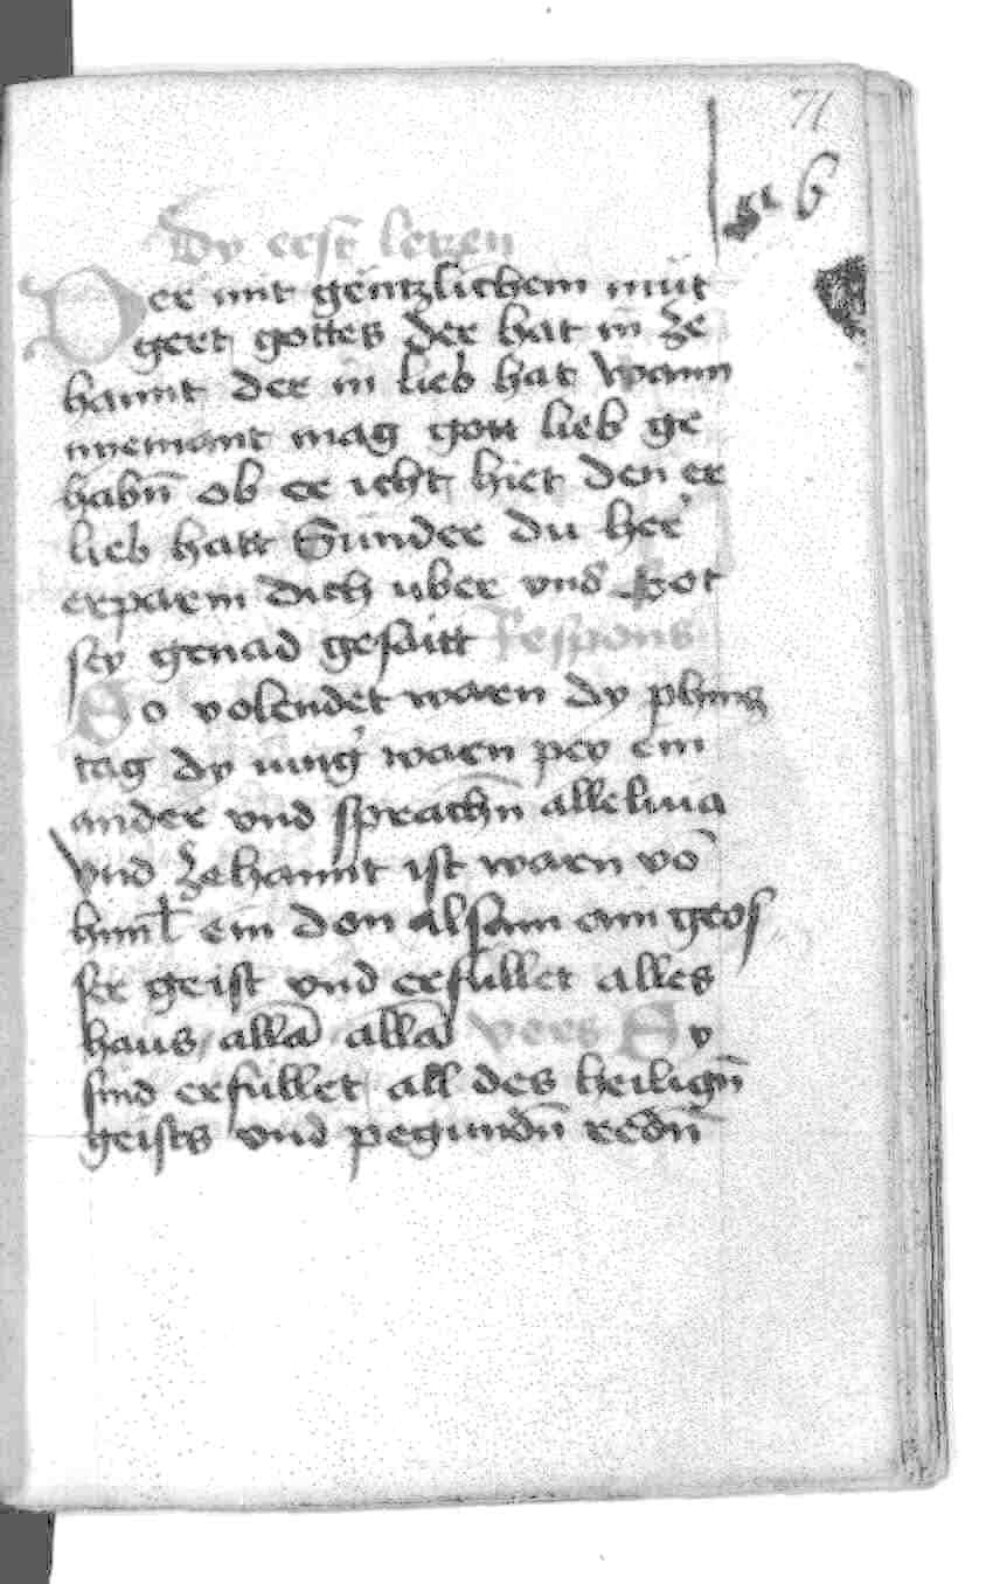 71
6
Dy erst letzen
Der mit gentzlichem müt
gert gottes der hat in ze
hannt der in lieb hat wann
nyemant mag gott lieb ge
habn̄ ob er icht hiet den er
lieb hatt Sunder du her
erparem dich uber vns Got
sey genad gesaitt Respons
So volendet warn dy phings
tag dy iung' warn pey ein
ander vnd sprachn̄ alleluia
vnd zehannt ist warn vō
himl ein don alsam ain gros
ser geist vnd erfullet alles
haus all̄a all̄a vers Sy
sind erfullet all des heilign̄
geists vnd pegundn̄ redn̄